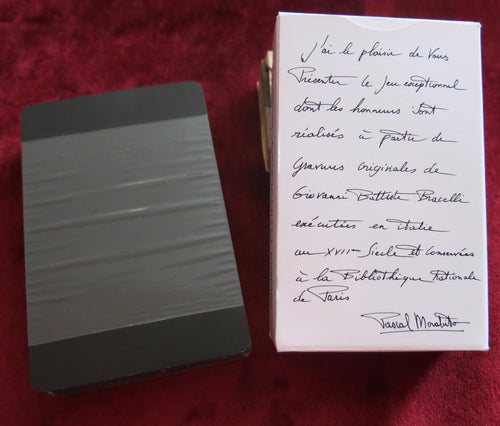 J'ai le plaisir de Vous
Présenter le Jeu exceptionnel
dont les honneurs sont
réalisés à partir de
Gravures originales de
Giovanni Battista Bracelli
exécutées en italie
au XVIIme Siècle et Conservées
à la Bibliothèque Nationale
de Paris
Pascal